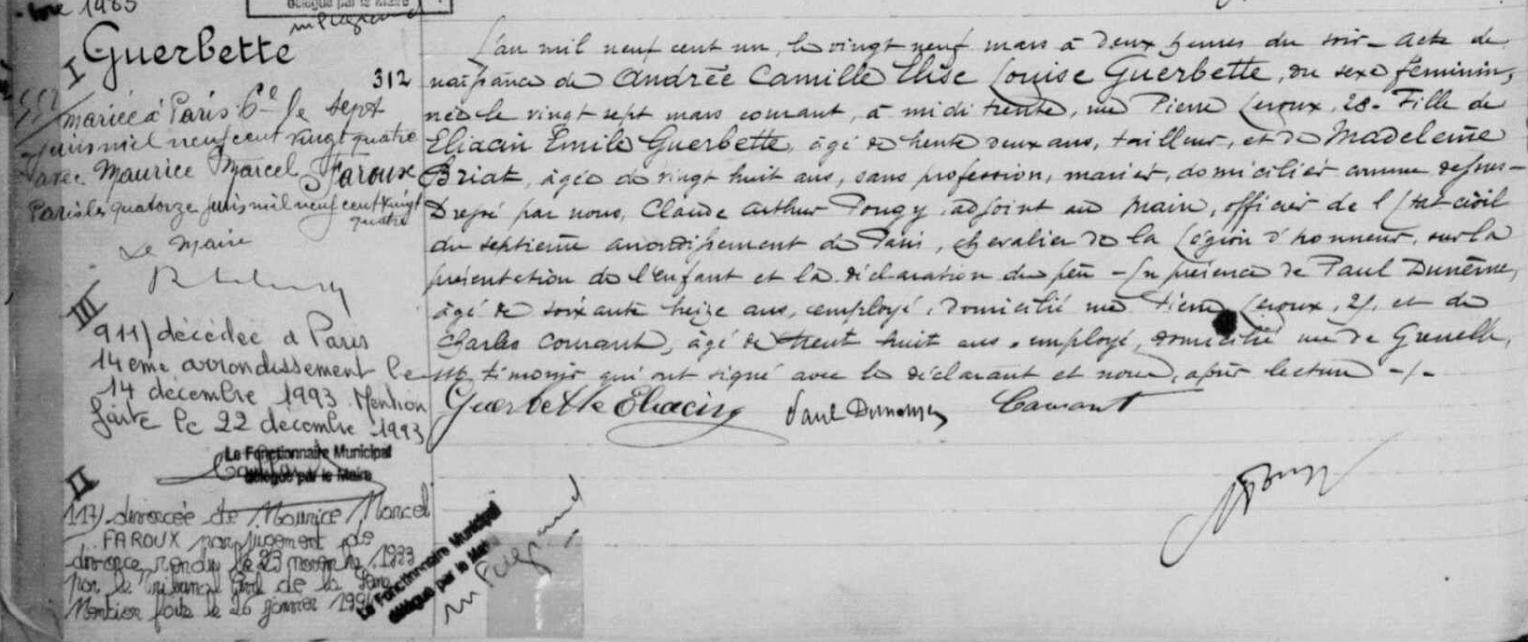 bre 1985
délégué par le Maire
Guerbette
312
I
mariée à Paris 6e le sept
juin mil neuf cent vingt quatre
avec Maurice Marcel Faroux
Paris le quatorze juin mil neuf cent vingt
quatre
Le Maire
III
911/ décédée à Paris
14ème arrondissement le
14 décembre 1993 Mention
faite le 22 décembre 1993
Le Fonctionnaire Municipal
délégué par le Maire
II
117/ divorcée de Maurice Marcel
FAROUX par jugement de
divorce rendu le 23 novembre 1933
par le Tribunal Civil de la Seine
Mention faite le 26 janvier
Le Fonctionnaire Municipal
délégué par le Maire
L'an mil neuf cent un, le vingt neuf mars à deux heures du soir - acte de
naissance de Andrée Camille Elise Louise Guerbette, du sexe féminin,
née le vingt sept mars courant, à midi trente, rue Pierre Leroux, 28 - Fille de
Eliacin Emile Guerbette, âgé de trente deux ans, tailleur, et de Madeleine
Briat, âgée de vingt huit ans, sans profession, mariés, domiciliés comme dessus -
Dressé par nous, Claude Arthur Pougy, adjoint au Maire, officier de l'Etat civil
du septième arrondissement de Paris, chevalier de la Légion d'honneur, sur la
présentation de l'enfant et la déclaration du père - En présence de Paul
âgé de soixante treize ans, employé, domicilié rue Pierre Leroux, et de
Charles Courant, âgé de trent huit ans, employé, domicilié rue de Grenelle,
témoins qui ont signé avec le déclarant et nous, après lecture -/-
Guerbette Eliacin Paul Courant